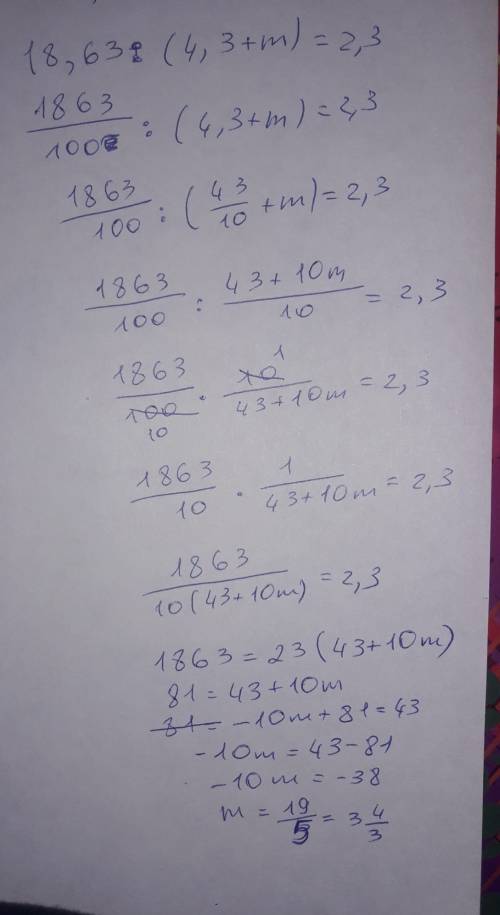 18,63 : (4,3+m) = 2,3
1863/100 : (4,3+m) = 2,3
1863/100 : (43/10 + m) = 2,3
1863/100 : 43+10m/10 = 2,3
1863/100 10 · 10 1/43+10m = 2,3
1863/10 · 1/43+10m = 2,3
1863/10(43+10m) = 2,3
1863 = 23(43+10m)
81 = 43+10m
81 = -10m+81 = 43
-10m = 43-81
-10m = -38
m = 19/5 = 3 4/3